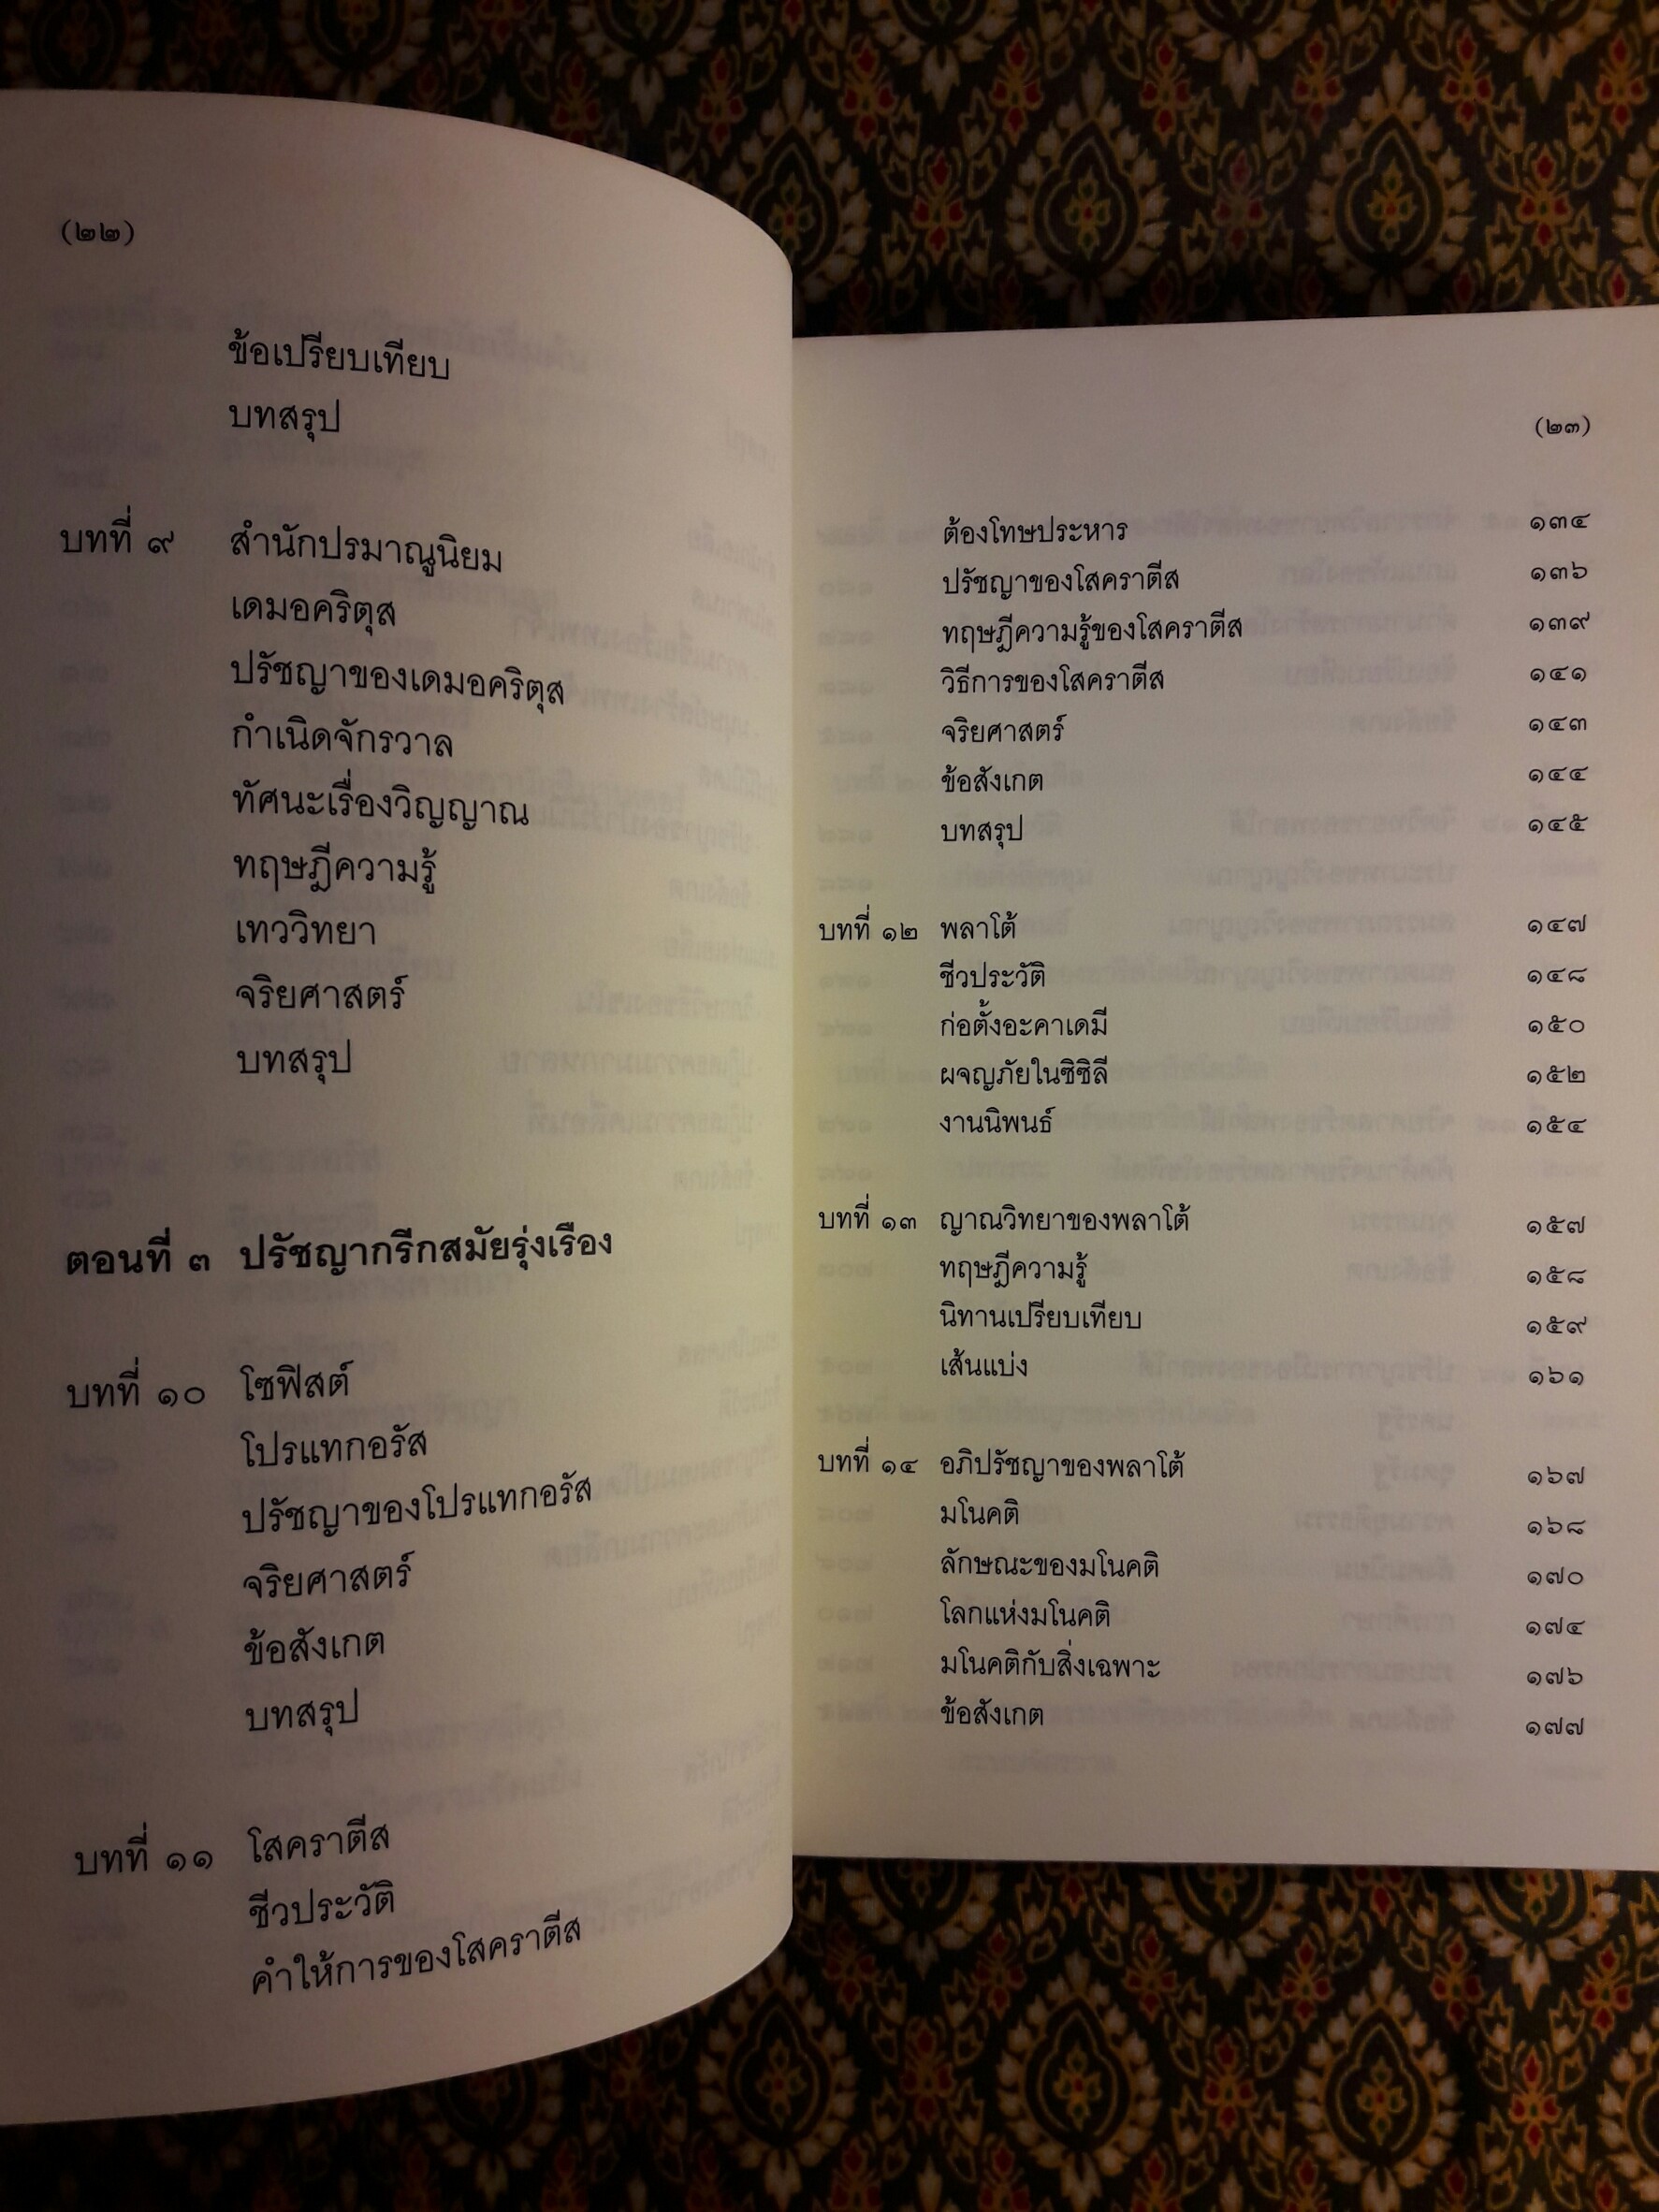 (๒๒)
ข้อเปรียบเทียบ
บทสรุป
บทที่ ๙ สำนักปรมาณูนิยม
เดมอคริตุส
ปรัชญาของเดมอคริตุส
กำเนิดจักรวาล
ทัศนะเรื่องวิญญาณ
ทฤษฎีความรู้
เทววิทยา
จริยศาสตร์
บทสรุป
ตอนที่ ๓ ปรัชญากรีกสมัยรุ่งเรือง
บทที่ ๑๐ โซฟิสต์
โปรแทกอรัส
ปรัชญาของโปรแทกอรัส
จริยศาสตร์
ข้อสังเกต
บทสรุป
บทที่ ๑๑ โสคราตีส
ชีวประวัติ
คำให้การของโสคราตีส
(๒๓)
ต้องโทษประหาร ๑๓๔
ปรัชญาของโสคราตีส ๑๓๖
ทฤษฎีความรู้ของโสคราตีส ๑๓๙
วิธีการของโสคราตีส ๑๔๑
จริยศาสตร์ ๑๔๓
ข้อสังเกต ๑๔๔
บทสรุป ๑๔๕
บทที่ ๑๒ พลาโต้ ๑๔๗
ชีวประวัติ ๑๔๘
ก่อตั้งอะคาเดมี ๑๕๐
ผจญภัยในซิซิลี ๑๕๒
งานนิพนธ์ ๑๕๔
บทที่ ๑๓ ญาณวิทยาของพลาโต้ ๑๕๗
ทฤษฎีความรู้ ๑๕๘
นิทานเปรียบเทียบ ๑๕๙
เส้นแบ่ง ๑๖๑
บทที่ ๑๔ อภิปรัชญาของพลาโต้ ๑๖๗
มโนคติ ๑๖๘
ลักษณะของมโนคติ ๑๗๐
โลกแห่งมโนคติ ๑๗๔
มโนคติกับสิ่งเฉพาะ ๑๗๖
ข้อสังเกต ๑๗๗